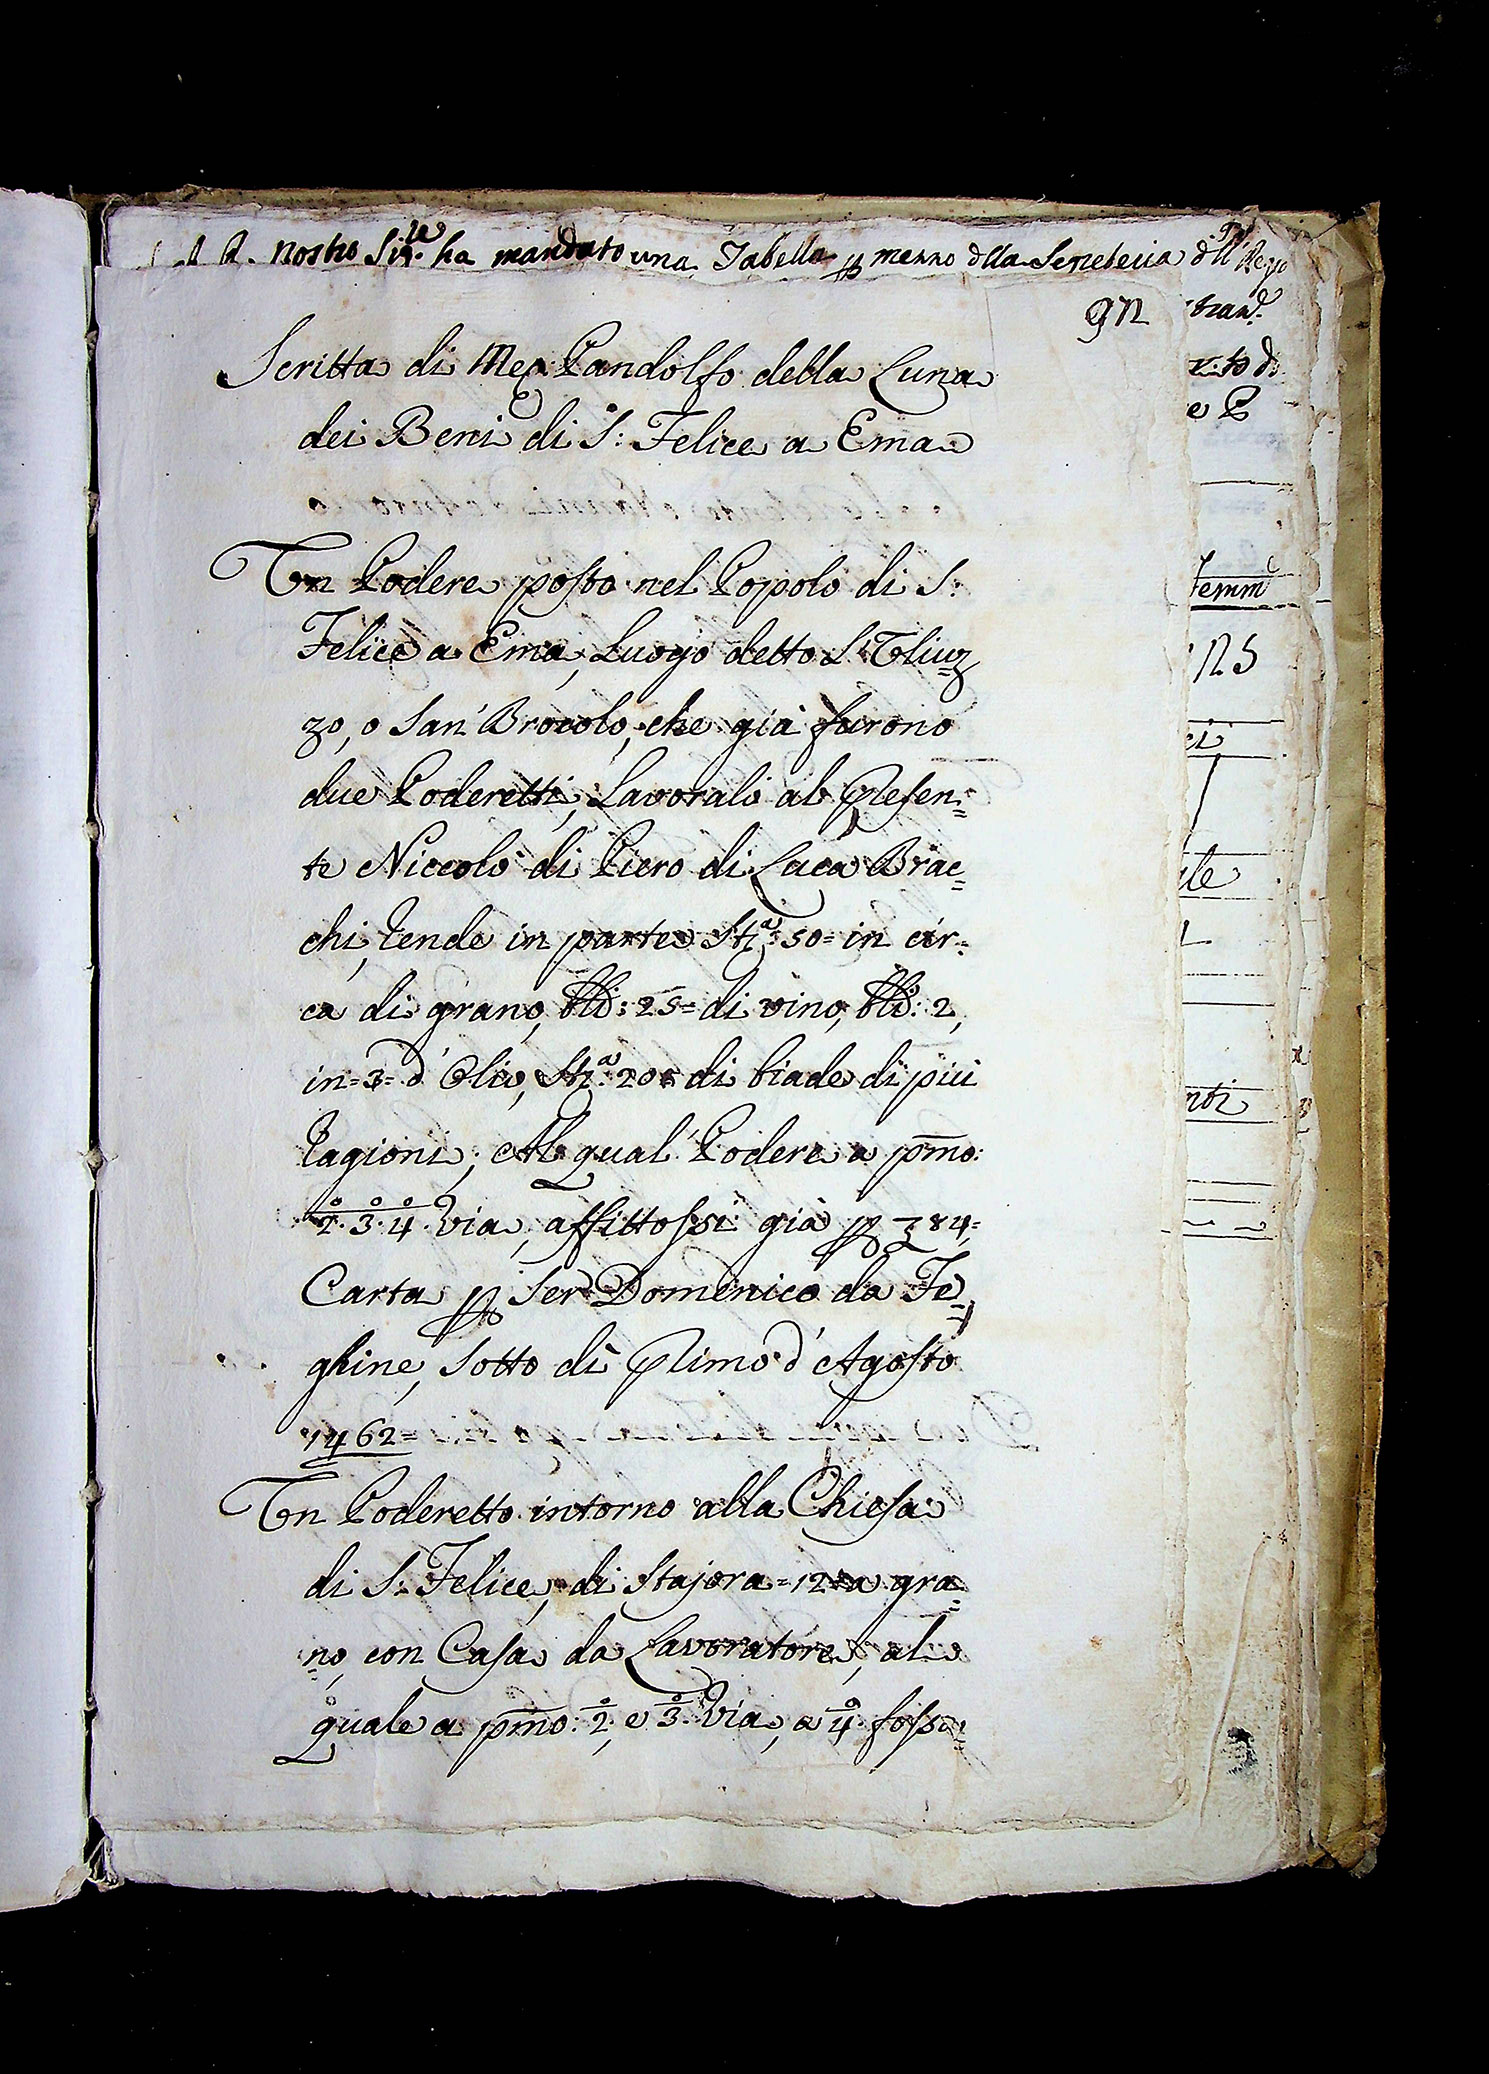 nostro Sig.re ha mandato una Tabella p mezzo dlla Segreteria dll Regio
92
Scritta di Meß. Pandolfo della Luna
dei Beni di S: Felice a Ema
Un Podere posto nel Popolo di S:
Felice a Ema, Luogo detto L'Uliuz
zo, o San' Brocolo, che già furono
due Poderetti, Lavoralo al Presen=
te Niccolò di Piero di Luca Brac=
chi, rende in parte Sta: 50= in cir=
ca di grano, bli: 25= di vino, bli: 2,
in=3= d'Olio, Sta: 20= di biade di più
ragioni; Al qual' Podere a pmo:
2°. 3°. 4°. via, affittossi già p 384=
Carta p Ser Domenico da Fe=
ghine, Sotto dì Primo d'Agosto
1462=
Un Poderetto intorno alla Chiesa
di S: Felice, di Stajora=12= a gra=
=no, con Casa da Lavoratore, al
quale a pmo: 2°, e 3°. Via, a 4° fossa=